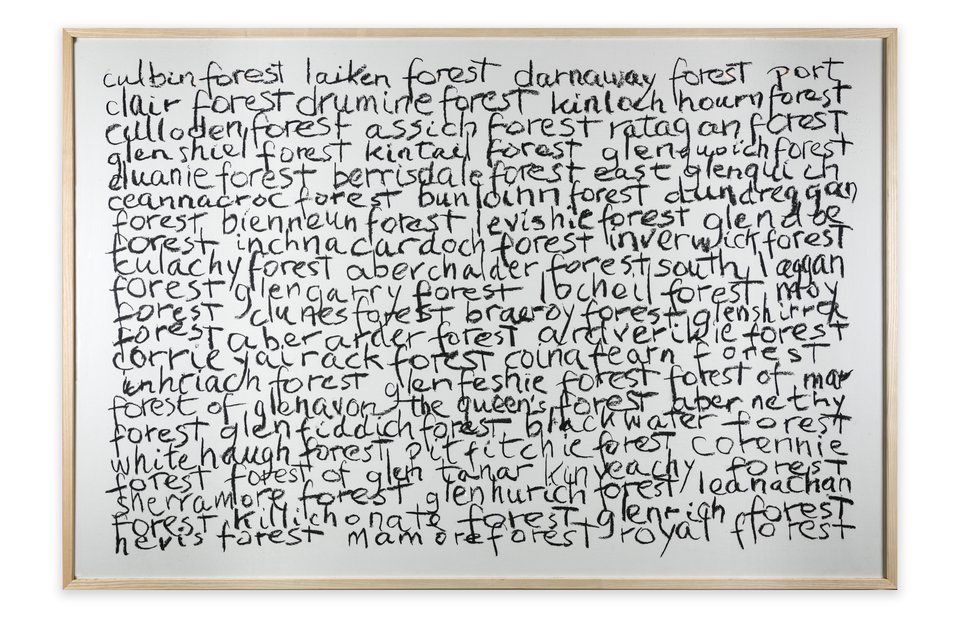 culbin forest laiken forest darnaway forest port
clair forest drumine forest kinloch hourn forest
culloden forest assich forest ratagan forest
glen shiel forest kintail forest glenquoich forest
cluanie forest berrisdale forest east glenquoich
ceannacroc forest bunloinn forest dundreggan
forest bienneun forest levishie forest glendbe
forest inchnacardoch forest inverwick forest
culachy forest aberchalder forest south laggan
forest glengarry forest locheil forest moy
forest clunes forest braeroy forest glenshirra
forest aberarder forest ardverikie forest
corrieyairack forest coignafearn forest
inhriach forest glenfeshie forest forest of mar
forest of glenavon the queen's forest abernethy
forest glenfiddich forest blackwater forest
whitehaugh forest pitfitchie forest corennie
forest forest of glen tanar kinveachy forest
sherramore forest glenhurich forest leanachan
forest killichonate forest glenrigh forest
nevis forest mamore forest royal forest